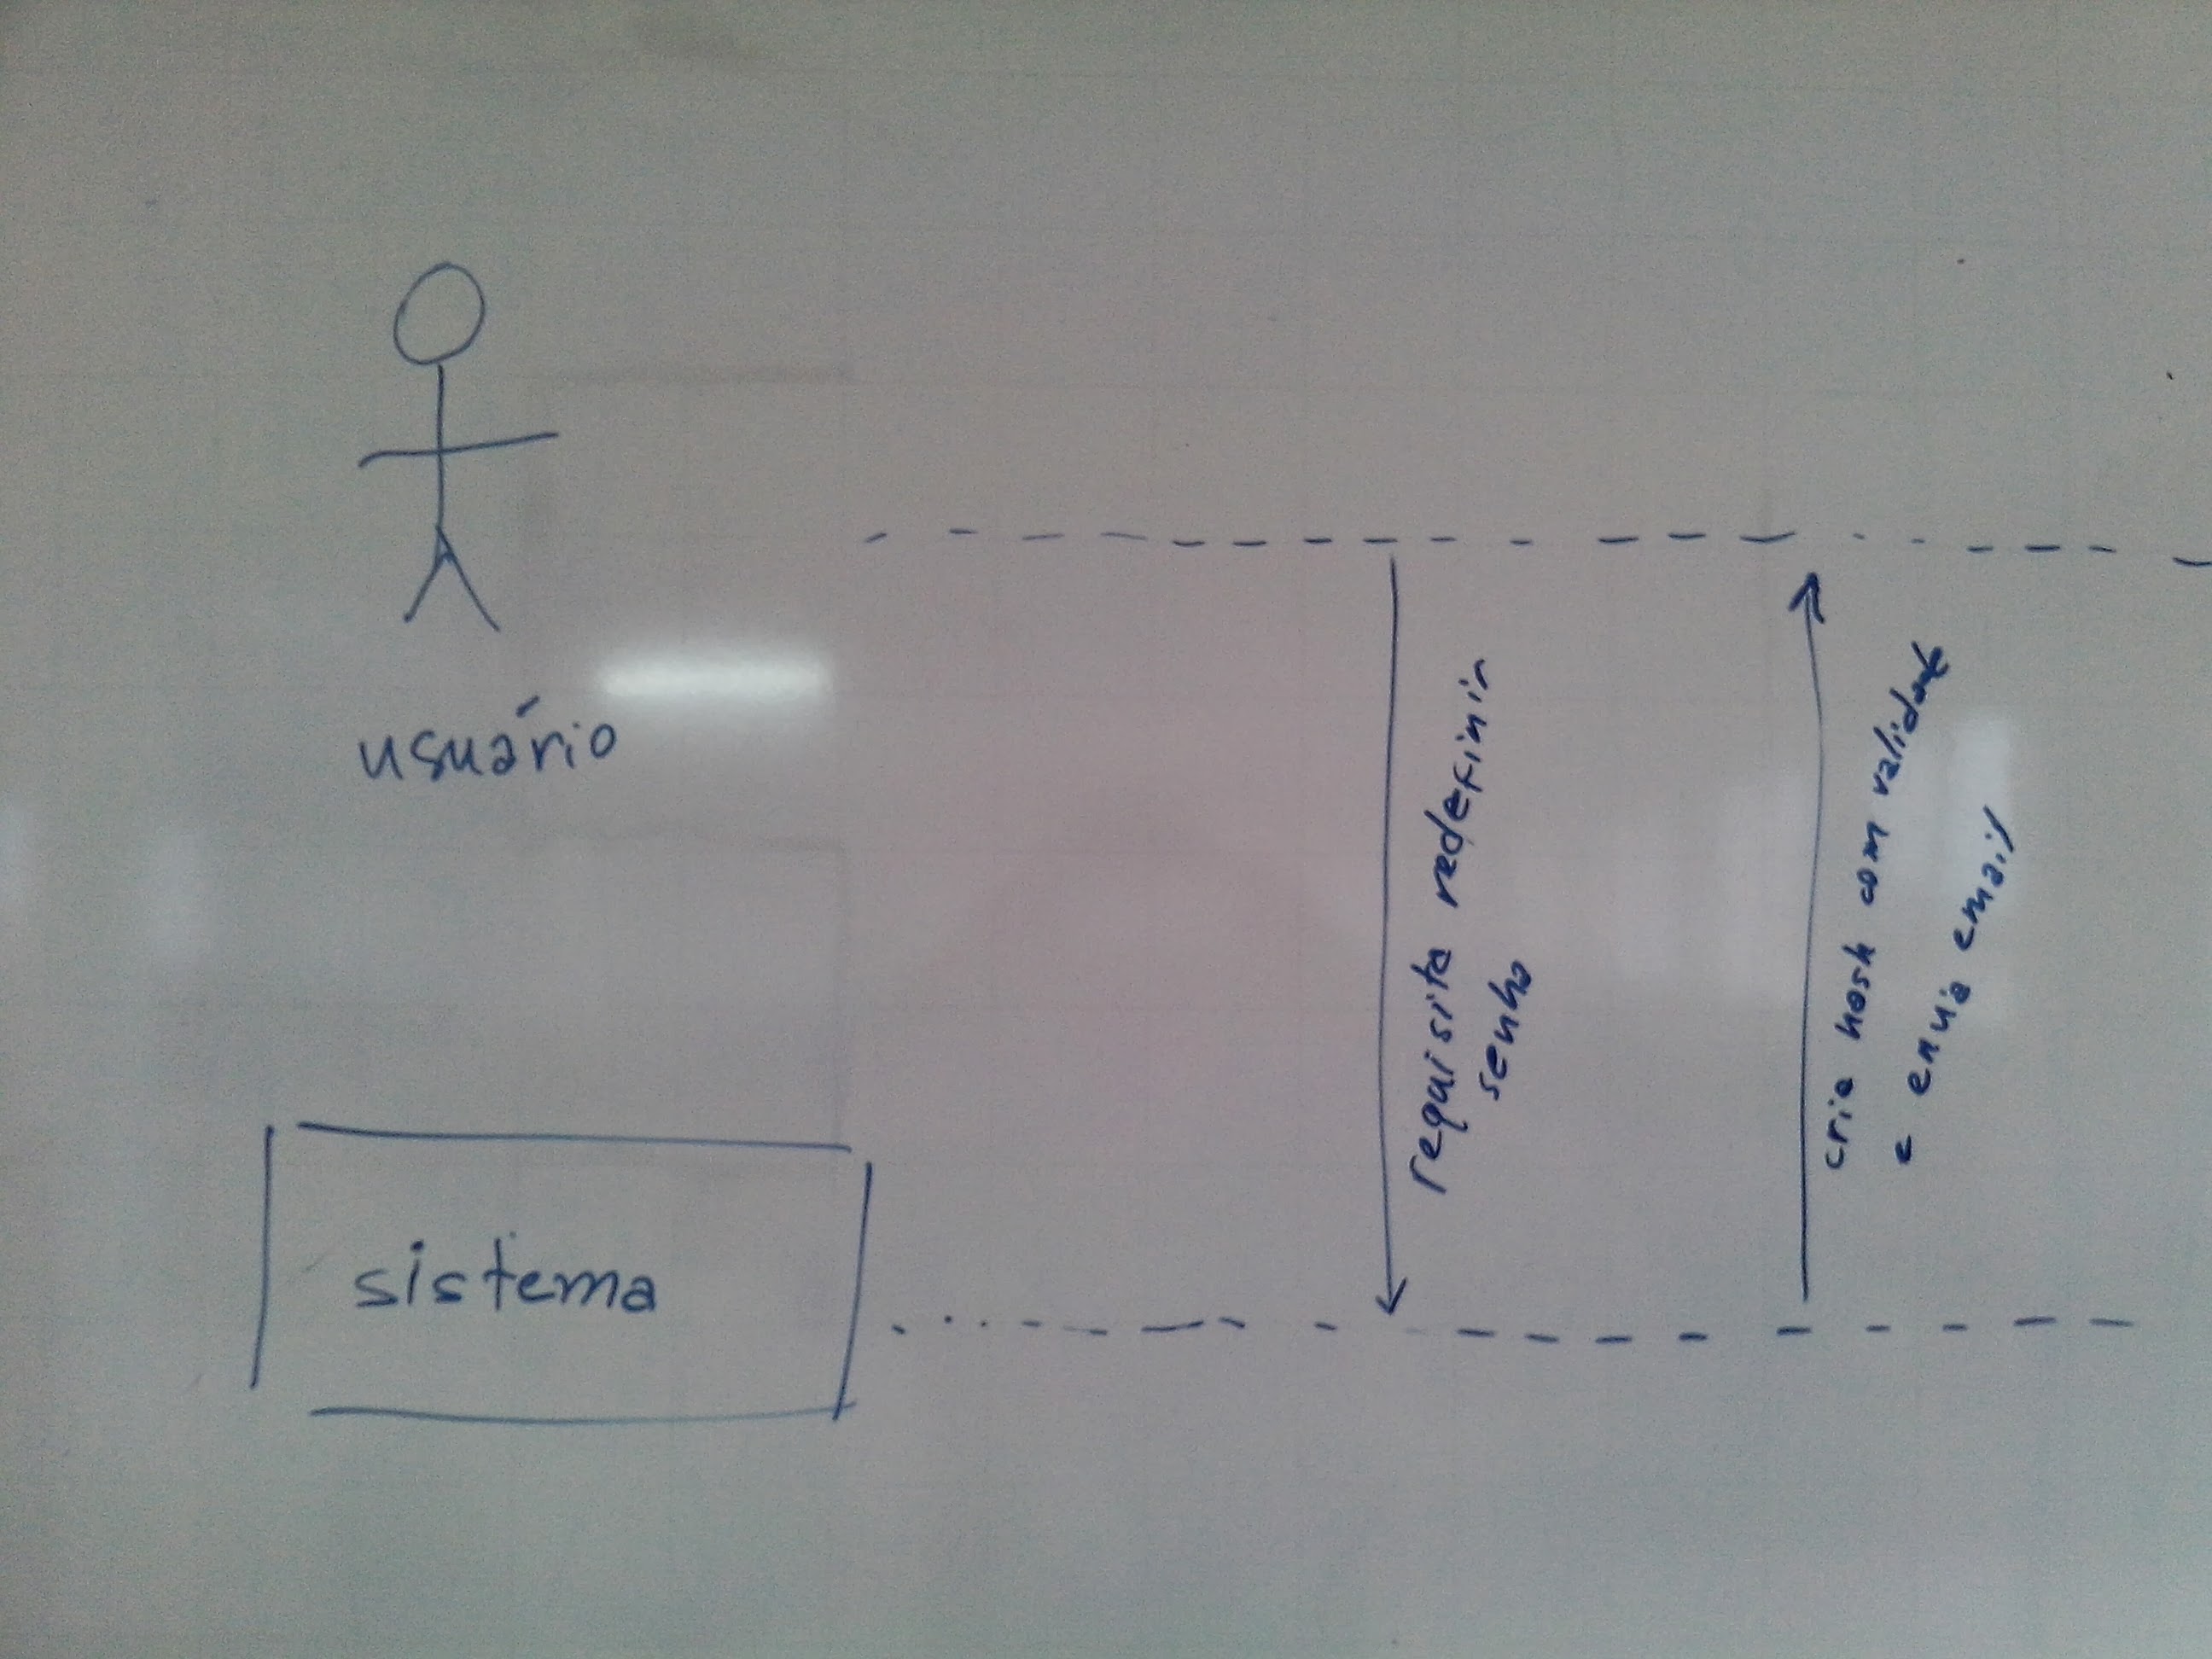 usuário
sistema
requisita redefinir
senha
cria hash com validade
e envia email